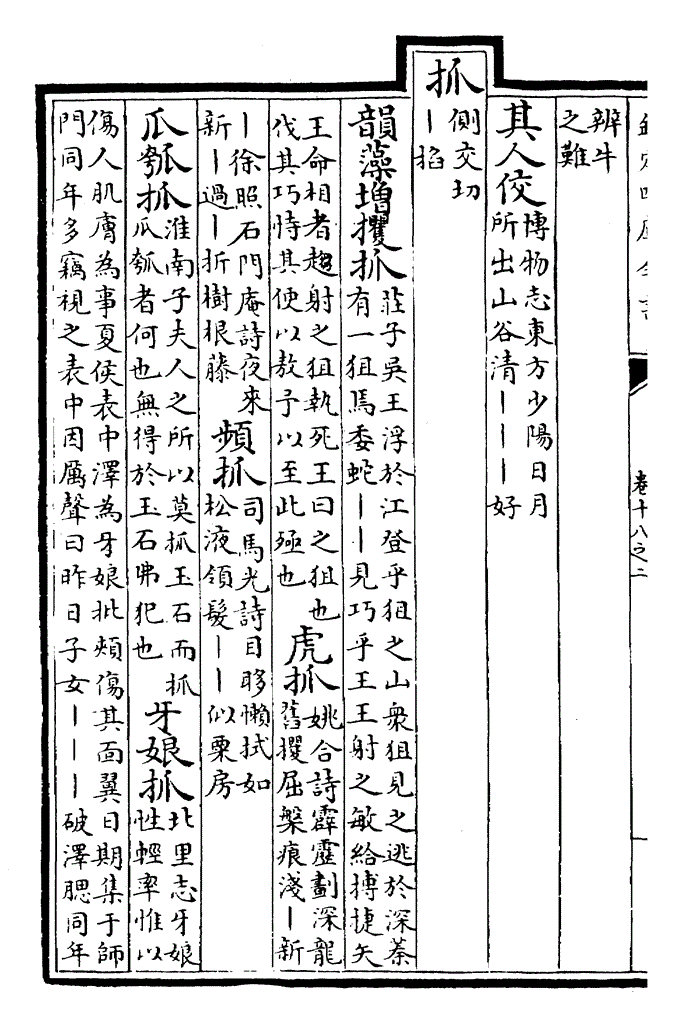 欽定四庫全書
卷十八之二
辨牛
之難
其人佼
博物志東方少陽日月
所出山谷清｜｜｜好
抓
側交切
｜掐
韻藻增攫抓
莊子吳王浮於江登乎狙之山衆狙見之逃於深蓁
有一狙焉委蛇｜｜見巧乎王王射之敏給搏捷矢
王命相者趨射之狙執死王曰之狙也
伐其巧恃其便以敖予以至此殛也
虎抓
姚合詩霹靂劃深龍
舊攫屈槃痕淺｜新
｜徐照石門庵詩夜來
新｜過｜折樹根藤
頻抓
司馬光詩目眵懶拭如
松液領髮｜｜似栗房
瓜瓠抓
淮南子夫人之所以莫抓玉石而抓
瓜瓠者何也無得於玉石弗犯也
牙娘抓
北里志牙娘
性輕率惟以
傷人肌膚為事夏侯表中澤為牙娘批頰傷其面翼日期集于師
門同年多竊視之表中因厲聲曰昨日子女｜｜｜破澤腮同年